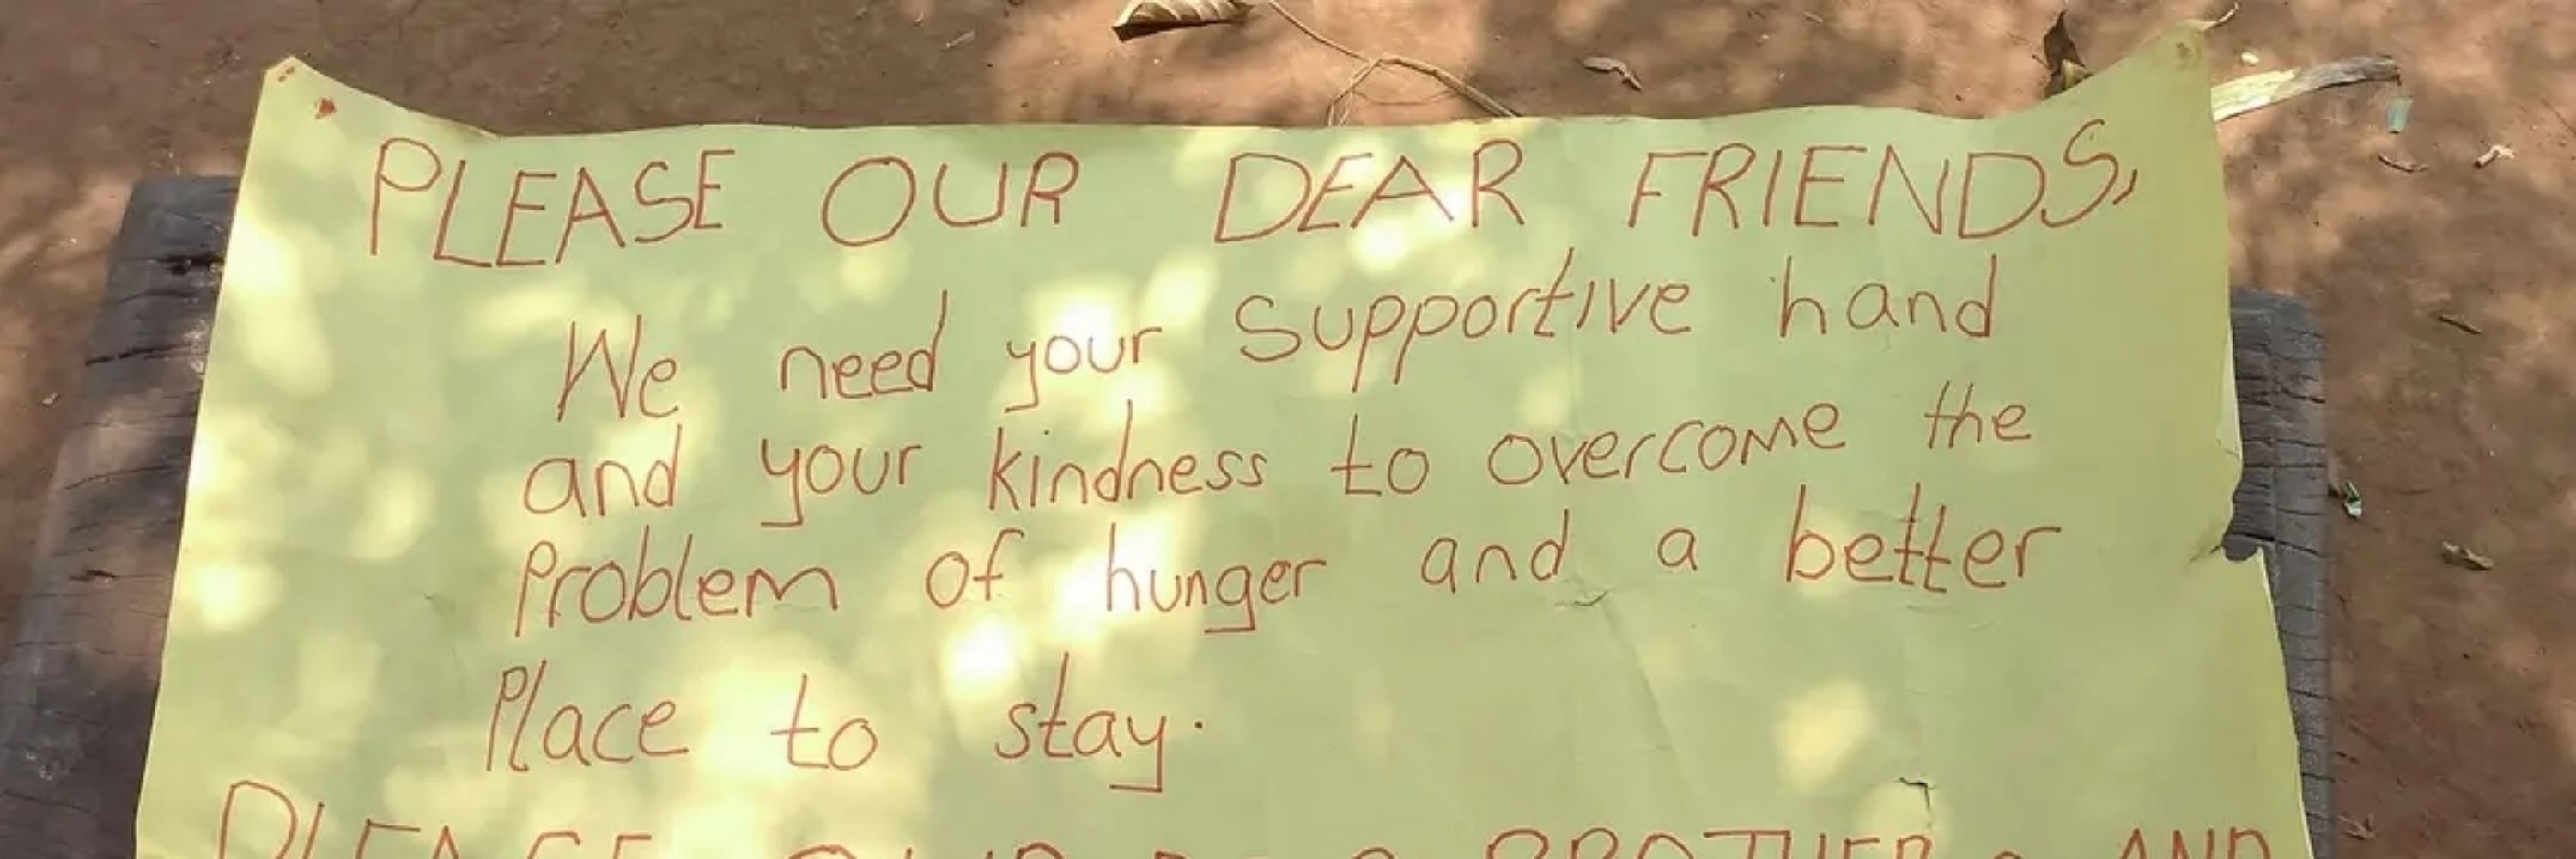 PLEASE OUR DEAR FRIENDS,
We need your supportive hand
and your kindness to overcome the
Problem of hunger and a better
Place to stay.
PLEASE OUR BROTHERS AND